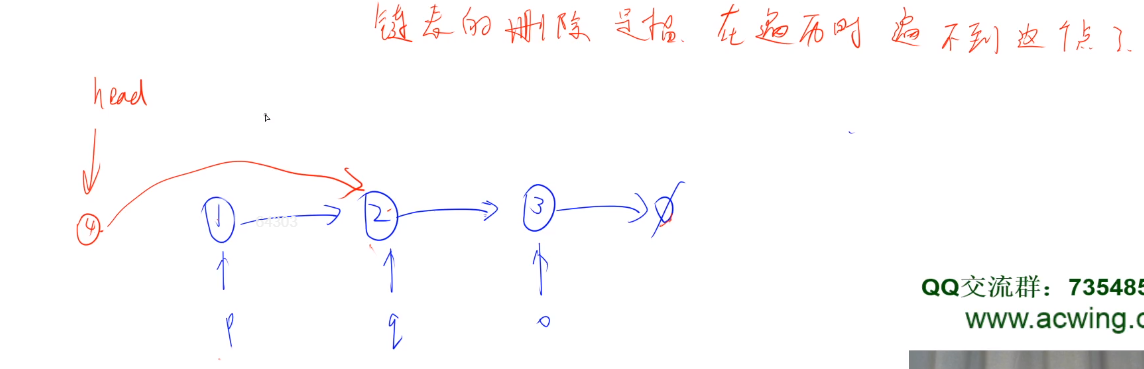 链表的删除 是指 在遍历时 遍不到这个点了
head
4 1 2 3 ∅
p q o
QQ交流群：735485
www.acwing.c